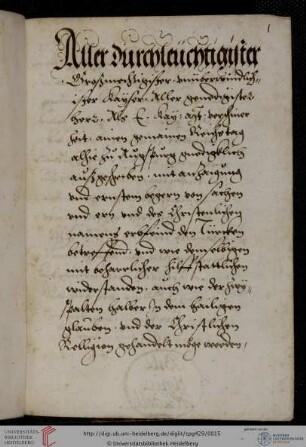 1
Aller durchleuchtigister
Großmechtigister vnuberwindlich=
ister Kayser. Aller genedigister
herr. Als E. Kay. Mt. verschiner
Zeit ainen gemainen Reichstag
alhie zu Augspurg gnedigklich
außgeschriben, mit anzaigung
vnd ernstem begern von sachen
vnd des Christenlichen
namens erbfeind den Türcken
betreffend, vnd wie demselbigen
mit beharrlicher hilff stattlichen
widerstanden, auch wie der zwy=
spalten halber in dem hailigen
glauben, vnd der Christlichen
Religion gehandelt möge werden,
UNIVERSITÄTS-
BIBLIOTHEK
HEIDELBERG
http://digi.ub.uni-heidelberg.de/diglit/cpg429/0015
© Universitätsbibliothek Heidelberg